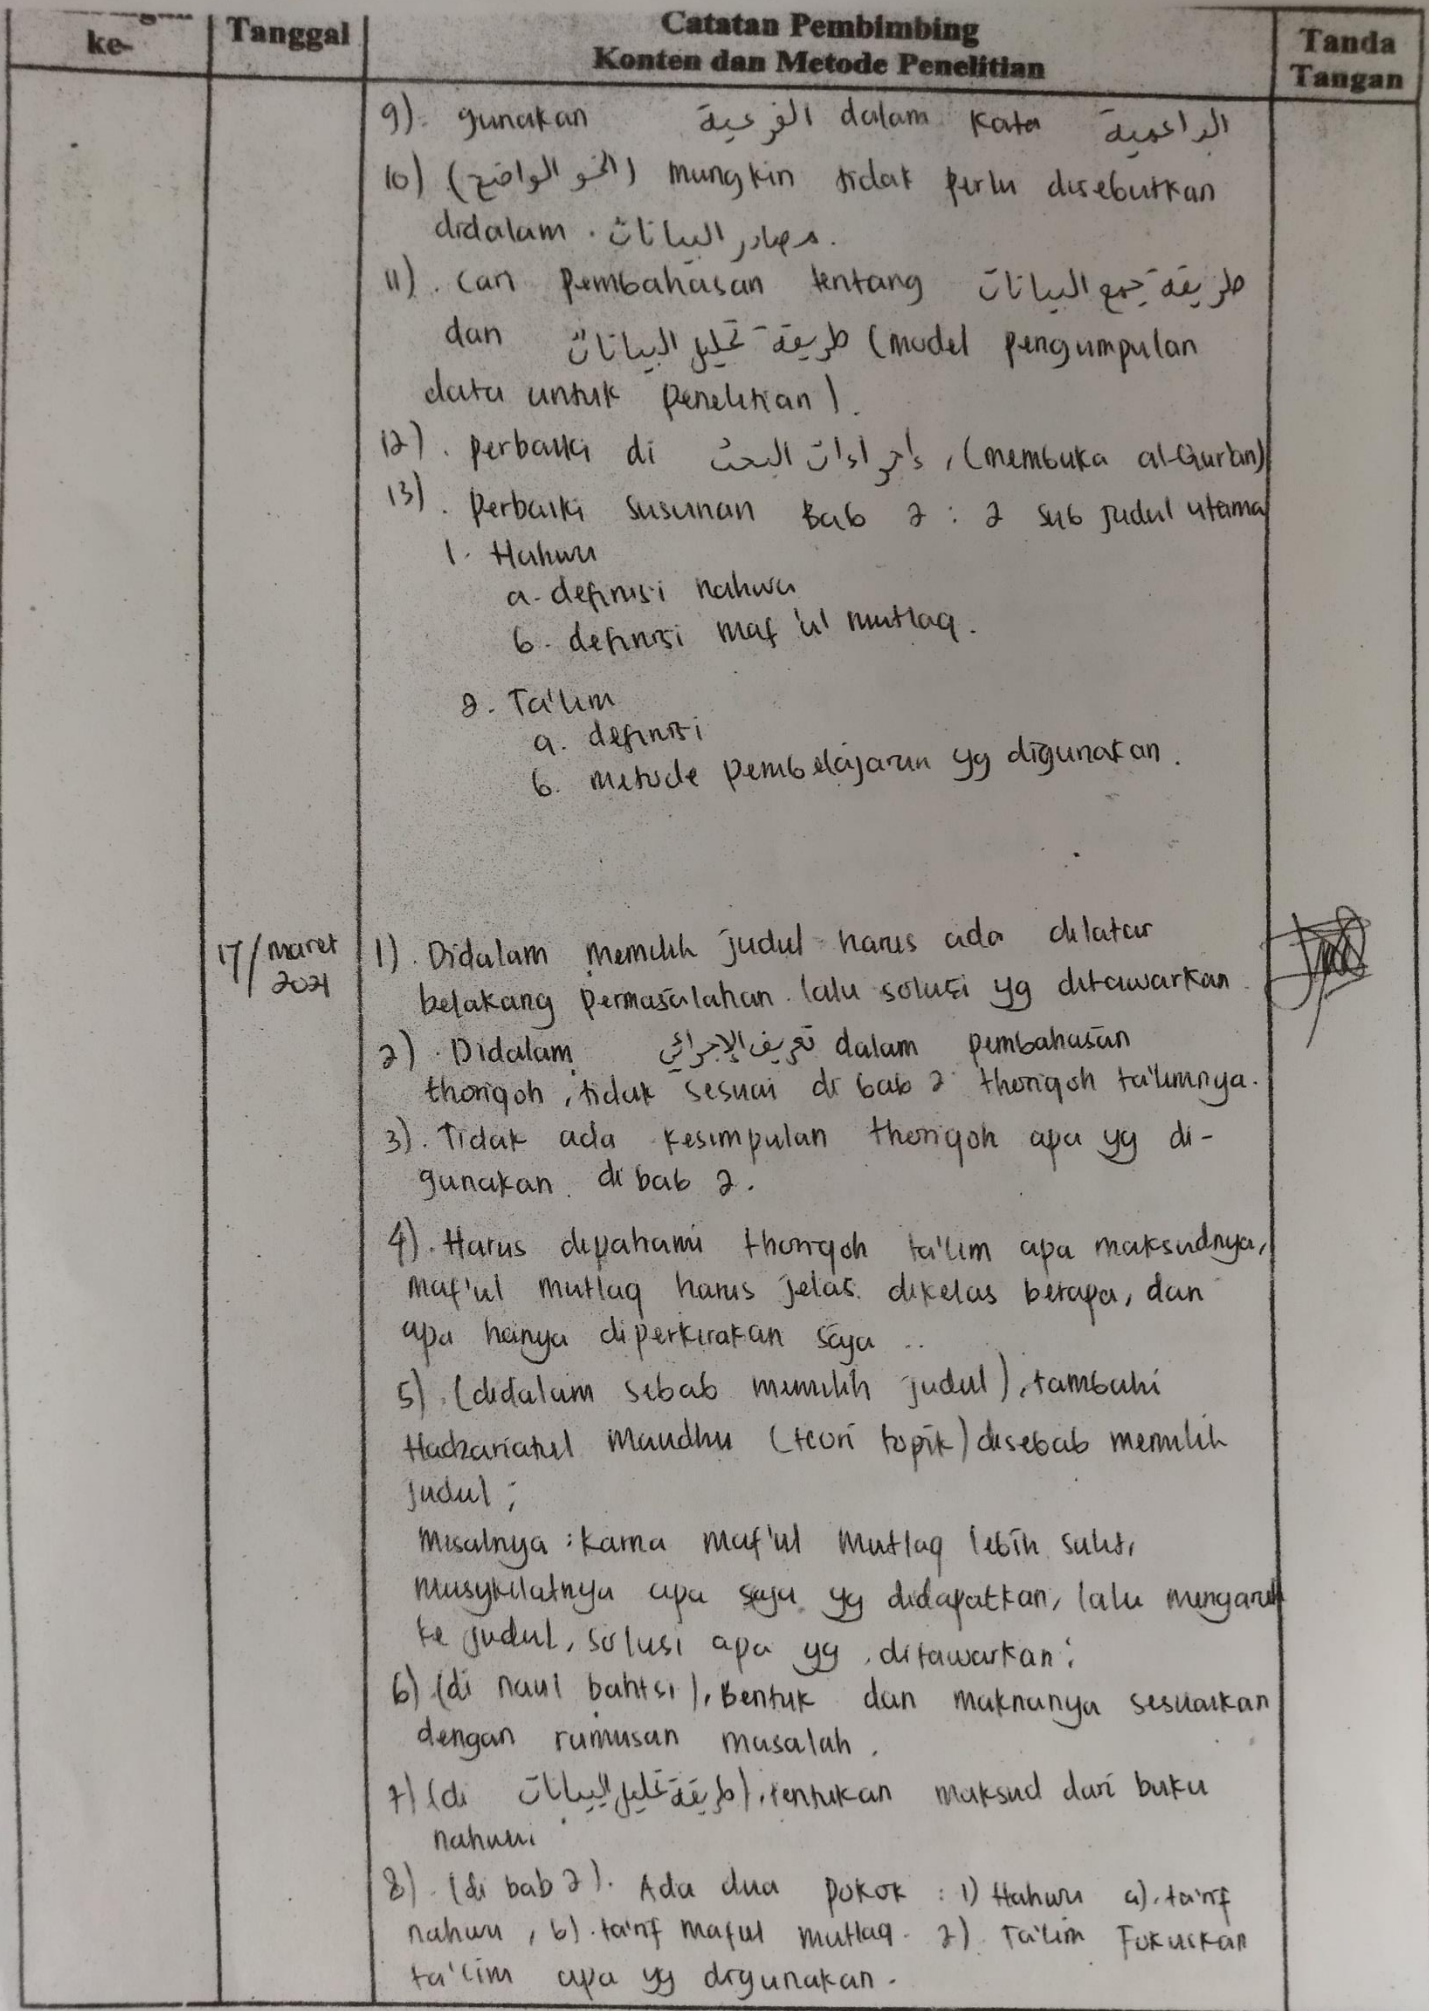 ke-
Tanggal
Catatan Pembimbing
Konten dan Metode Penelitian
Tanda
Tangan
9). gunakan الفرعية dalam kata
10) (النحو الواضح) mungkin tidak perlu disebutkan
didalam. مصادر البيانات.
11). Cari pembahasan tentang طريقة جمع البيانات
dan طريقة تحليل البيانات (model pengumpulan
data untuk penelitian).
12). perbaiki di إجراءات البحث, (membuka al-Qur'an)
13). perbaiki susunan Bab 2 : 2 sub judul utama
1. Nahwu
a. definisi nahwu
b. definisi maf'ul mutlaq.
2. Ta'lim
a. definisi
b. metode pembelajaran yg digunakan.
17/maret
2021
1). Didalam memilih judul harus ada dilatar
belakang permasalahan. lalu solusi yg ditawarkan.
2). Didalam تعريف الإجرائي dalam pembahasan
thoriqoh, tidak sesuai di bab 2 thoriqoh ta'limnya.
3). Tidak ada kesimpulan thoriqoh apa yg di-
gunakan. di bab 2.
4). Harus dipahami thoriqoh ta'lim apa maksudnya,
Maf'ul mutlaq harus jelas. dikelas berapa, dan
apa hanya diperkirakan saja ..
5). (didalam sebab memilih judul), tambahi
Nadzariatul Maudhu (teori topik) disebab memilih
judul;
Misalnya : karna maf'ul mutlaq lebih sulit,
musykilatnya apa saja yg didapatkan, lalu mengarah
ke judul, solusi apa yg ditawarkan;
6) (di bahtsi), Bentuk dan maknanya sesuaikan
dengan rumusan masalah.
7) (di طريقة تحليل البيانات), tentukan maksud dari buku
nahwu
8). (di bab 2). Ada dua pokok : 1) Nahwu a). ta'rif
nahwu, b). ta'rif maful mutlaq. 2). Ta'lim Fokuskan
ta'lim apa yg digunakan.